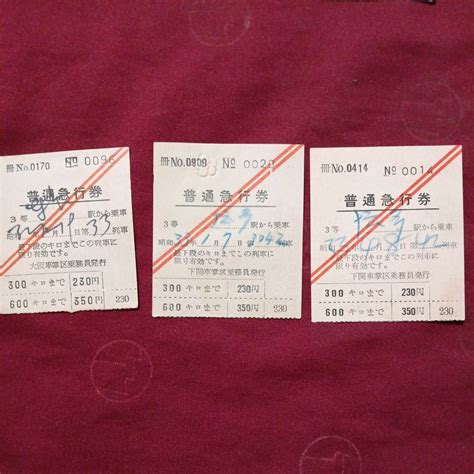 冊No.0170 No 0096
普通急行券
3等 駅から乗車
昭和 月 日第33列車
最下段のキロまでこの列車に
限り有効です。
大阪車掌区乗務員発行
300キロまで 230円
600キロまで 350円 230
冊No.0900 No 0029
普通急行券
3等 駅から乗車
昭和 年1月7日第 列車
最下段のキロまでこの列車に
限り有効です。
下関車掌区乗務員発行
300キロまで 230円
600キロまで 350円 230
冊No.0414 No 0014
普通急行券
3等 駅から乗車
昭和 年 月8日第 列車
最下段のキロまでこの列車に
限り有効です。
下関車掌区乗務員発行
300キロまで 230円
600キロまで 350円 230